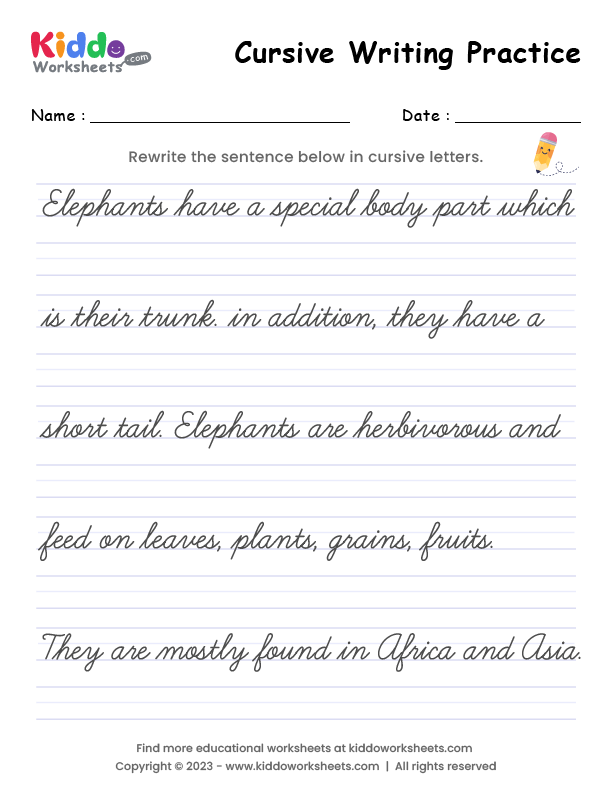 Kiddo
Worksheets
.com
Cursive Writing Practice
Name : Date :
Rewrite the sentence below in cursive letters.
Elephants have a special body part which
is their trunk. in addition, they have a
short tail. Elephants are herbivorous and
feed on leaves, plants, grains, fruits.
They are mostly found in Africa and Asia.
Find more educational worksheets at kiddoworksheets.com
Copyright © 2023 - www.kiddoworksheets.com | All rights reserved